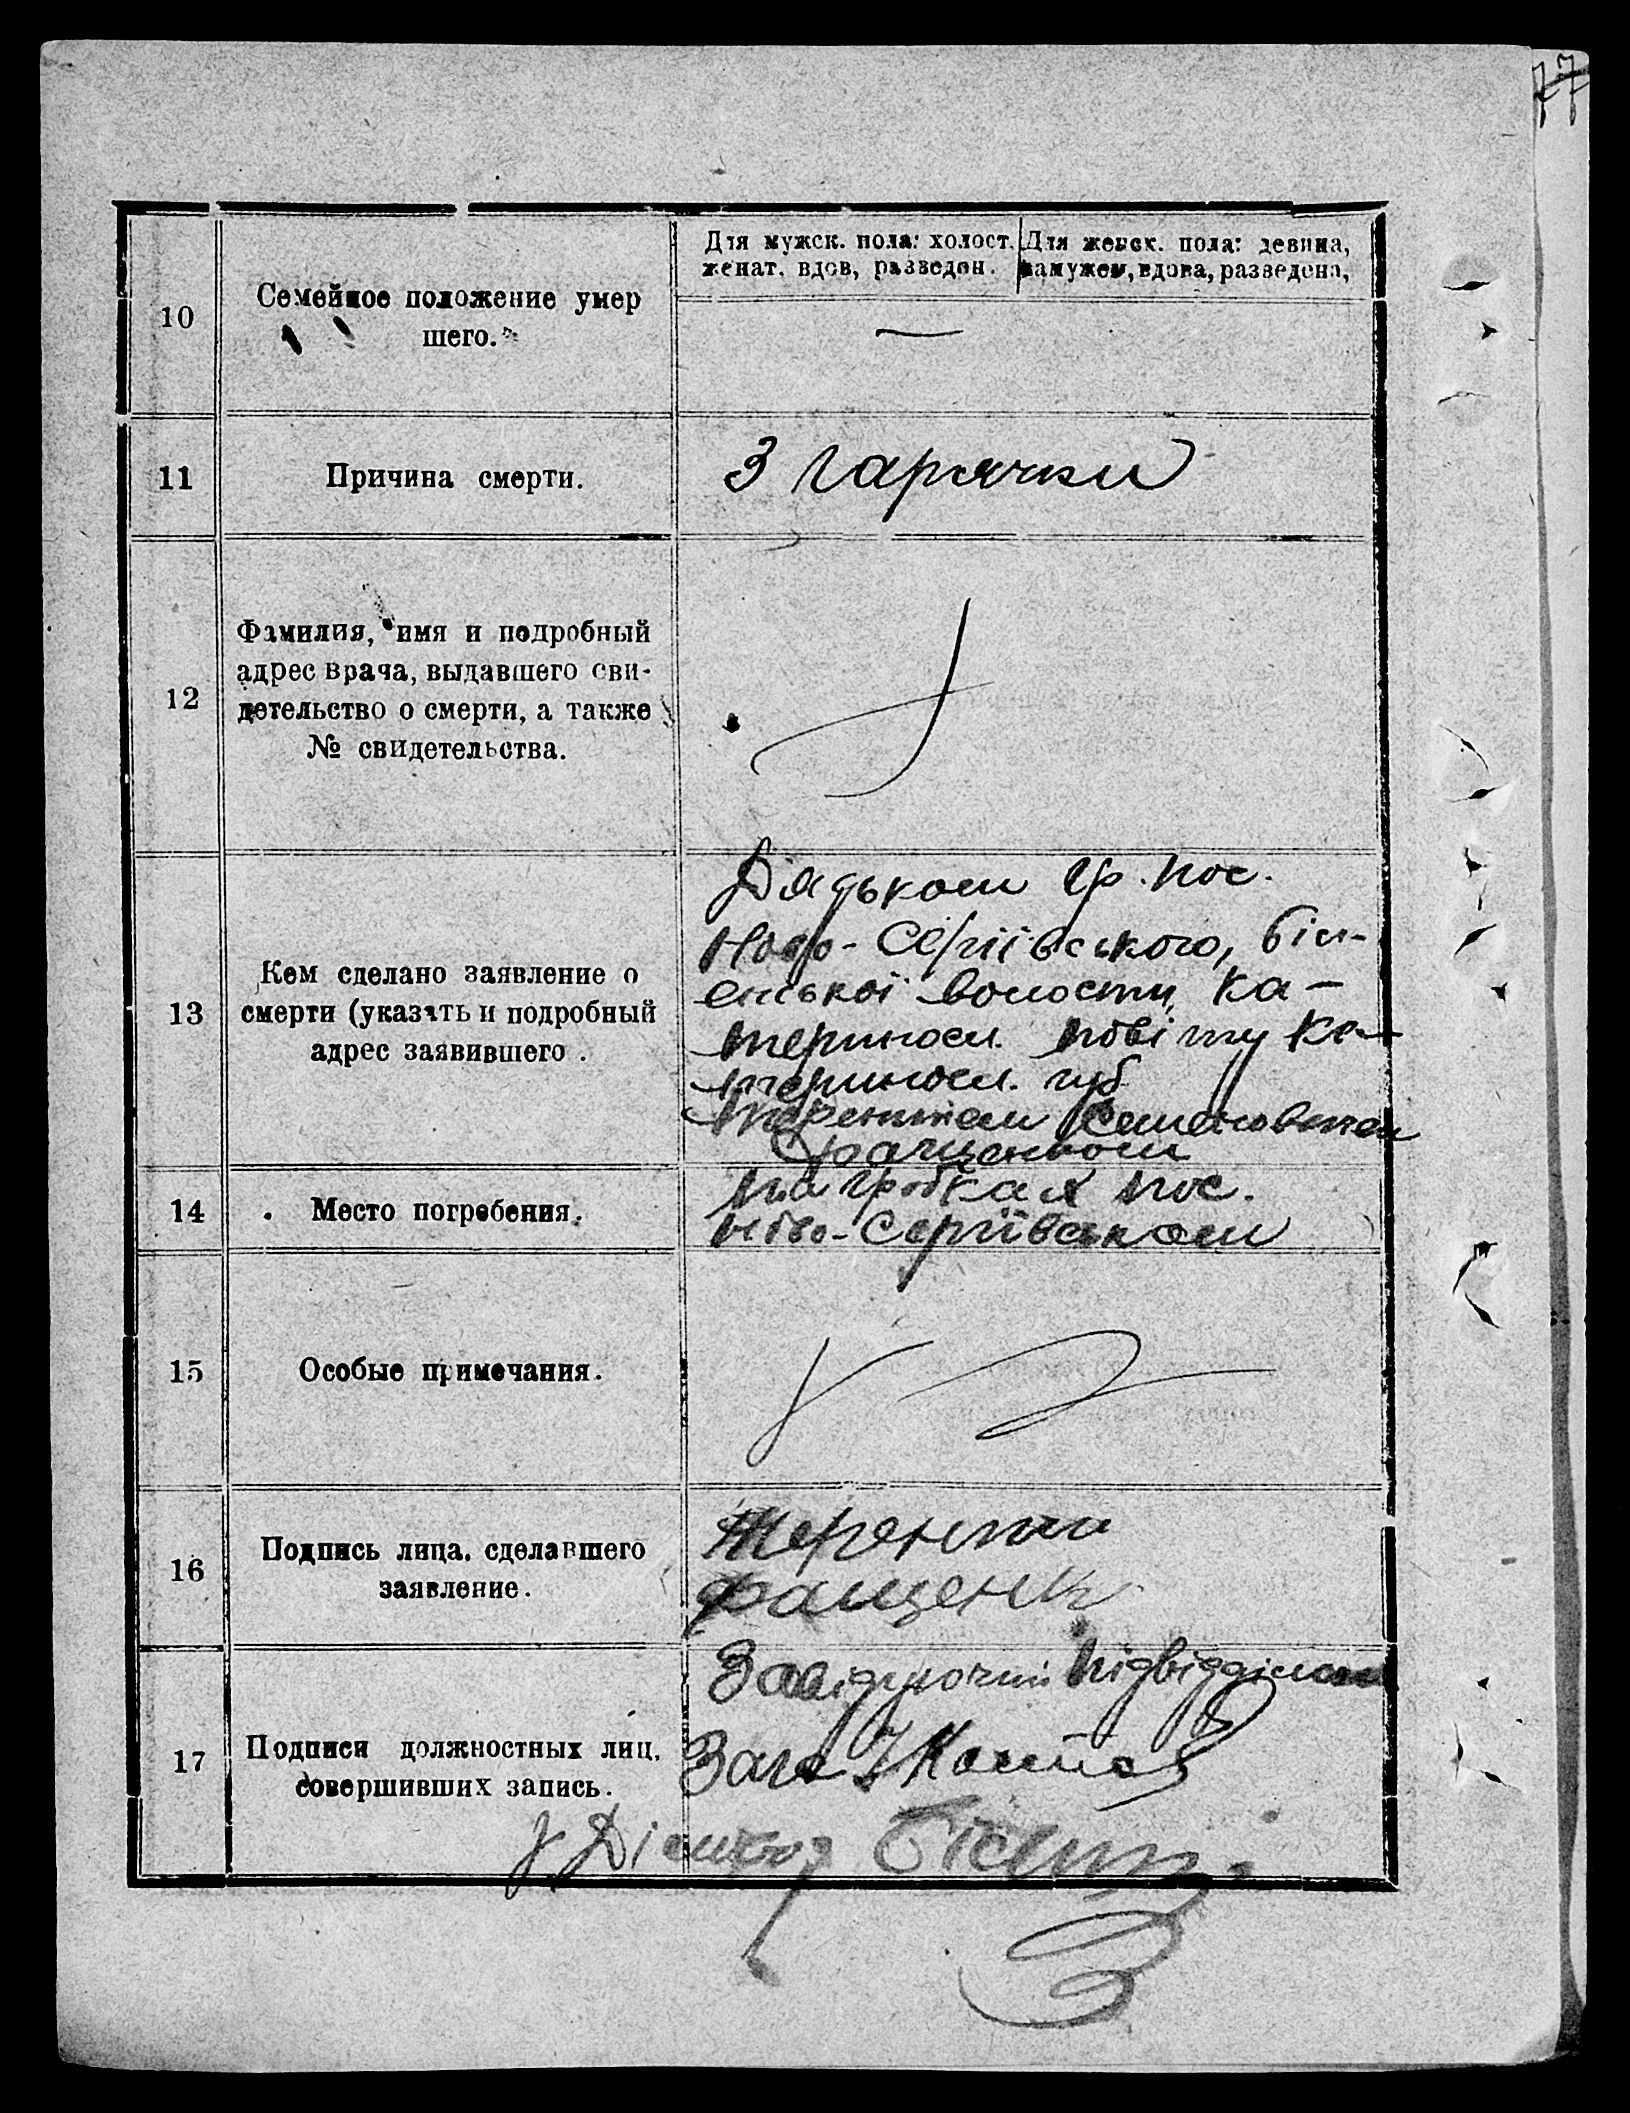 77
10
Семейное положение умер
шего.
Для мужск. пола: холост,
женат, вдов, разведен.
Для женск. пола: девица,
замужем, вдова, разведена,
—
11
Причина смерти.
З гарячки
12
Фамилия, имя и подробный
адрес врача, выдавшего сви-
детельство о смерти, а также
№ свидетельства.
13
Кем сделано заявление о
смерти (указать и подробный
адрес заявившего.
Дядьком гр. пос.
Ново-Сергіївського,
волости, Ка-
териносл. повіту Ка-
териносл. губ
Терентієм Семеновичем
Фащенком
14
Место погребения.
На гробках пос.
Ново-Сергіївском
15
Особые примечания.
16
Подпись лица, сделавшего
заявление.
Терентий
Фащенк
17
Подписи должностных лиц,
совершивших запись.
Завідуючий підвідділом
Загс